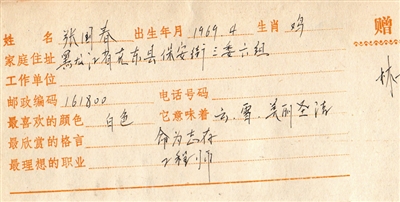 姓 名 张国春 出生年月 1969.4 生肖 鸡
赠
家庭住址 黑龙江省克东县保安街三委六组
工作单位
邮政编码 161800 电话号码
最喜欢的颜色 白色 它意味着 云.雪.美丽圣洁
最欣赏的格言 命为志存
最理想的职业 工程师
林